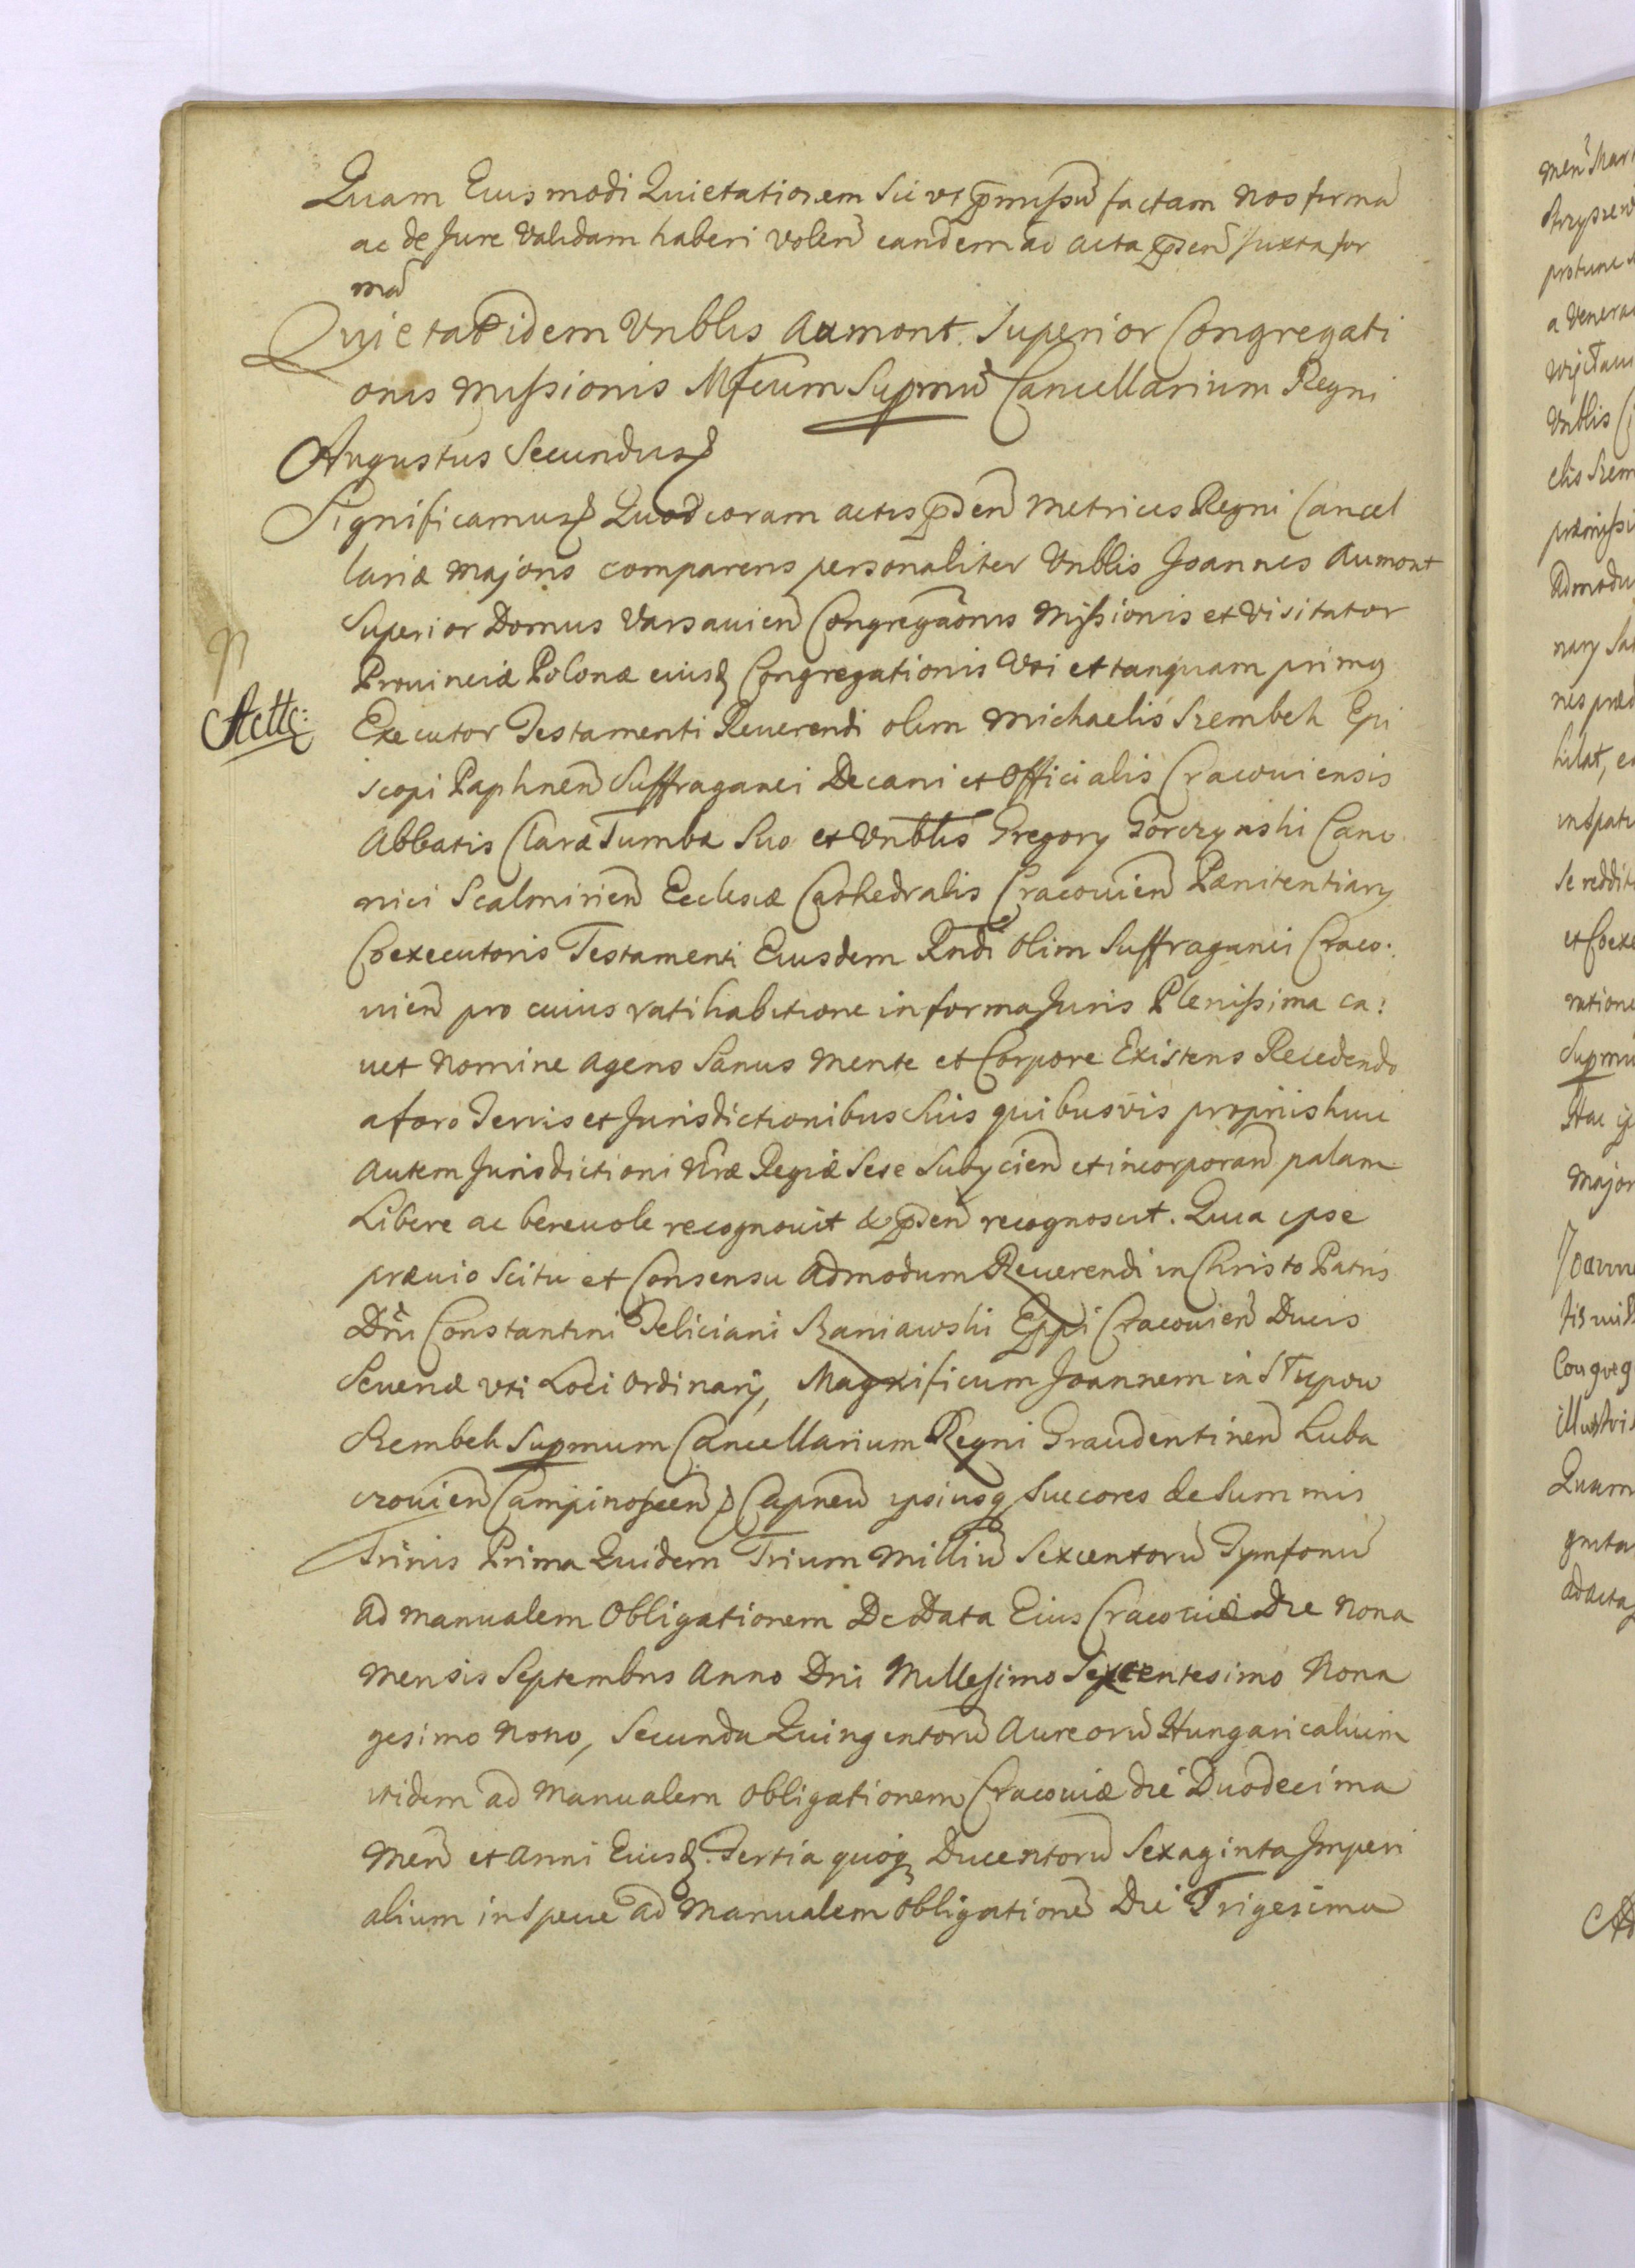 Quam Eius modi Quietationem Sic vt p̄mißū factam nos firmā
ac de Jure validam haberi volen̄ eandem ad acta p̄sen̄ juxta for
mā
Quietat idem Vnblis Aumont Superior Congregati
onis Mißionis Mfcum Supmū Cancellarium Regni
Augustus Secundus
Significamus Quod coram actis p̄sen̄ Metrices Regni Cancel
lariæ Majoris comparens personaliter Vnblis Joannes Aumont
Superior Domus Varsauien̄ Congregāonis Mißionis et Visitator
Prouinciæ Polonæ eiusd Congregationis Vti et tanquam primus
Actte:
Executor Testamenti Reuerendi olim Michaelis Szembek Epi
scopi Paphnen̄ Suffraganei Decani et Officialis Cracouiensis
Abbatis Claræ Tumbæ Suo et Vnblis Gregorij Gorczynski Cano
nici Scalmirien̄ Ecclesiæ Cathedralis Cracouien̄ Pænitentiarij
Coexecutoris Testamenti Eiusdem Rndi olim Suffraganei Craco:
uien̄ pro cuius ratihabitione in forma Juris Plenißima ca:
uet nomine agens Sanus mente et Corpore Existens Recedendo
a foro Terris et Jurisdictionibus Suis quibusvis propriis huic
autem Jurisdictioni Nr̄æ Regiæ Sese Subijcien̄ et incorporan̄ palam
Libere ac beneuole recognouit & p̄sen̄ recognoscit. Quia ipse
præuio Scitu et Consensu admodum Reuerendi in Christo Patris
Dn̄i Constantini Feliciani Szaniawski Eppi Cracouien̄ Ducis
Seueriæ vti Loci ordinarij, Magnificum Joannem in Słupow
Szembek Supmum Cancellarium Regni Graudentinen̄ Luba
czouien̄ Campinoscen̄ Capneū ipsiusq Succores de Summis
Trinis Prima Quidem Trium Milliū Sexcentorū Tymfonū
ad manualem Obligationem De Data Eius Cracouiæ Die nona
Mensis Septembris Anno Dni Millesimo Sexcentesimo Nona
gesimo nono, Secunda Quingentorū Aureorū Hungaricalium
itidem ad Manualem obligationem Cracouiæ die Duodecima
Men̄ et Anni Eiusd. Tertia quoq Ducentorū Sexaginta Imperi
alium in Specie ad Manualem obligationē Die Trigesima